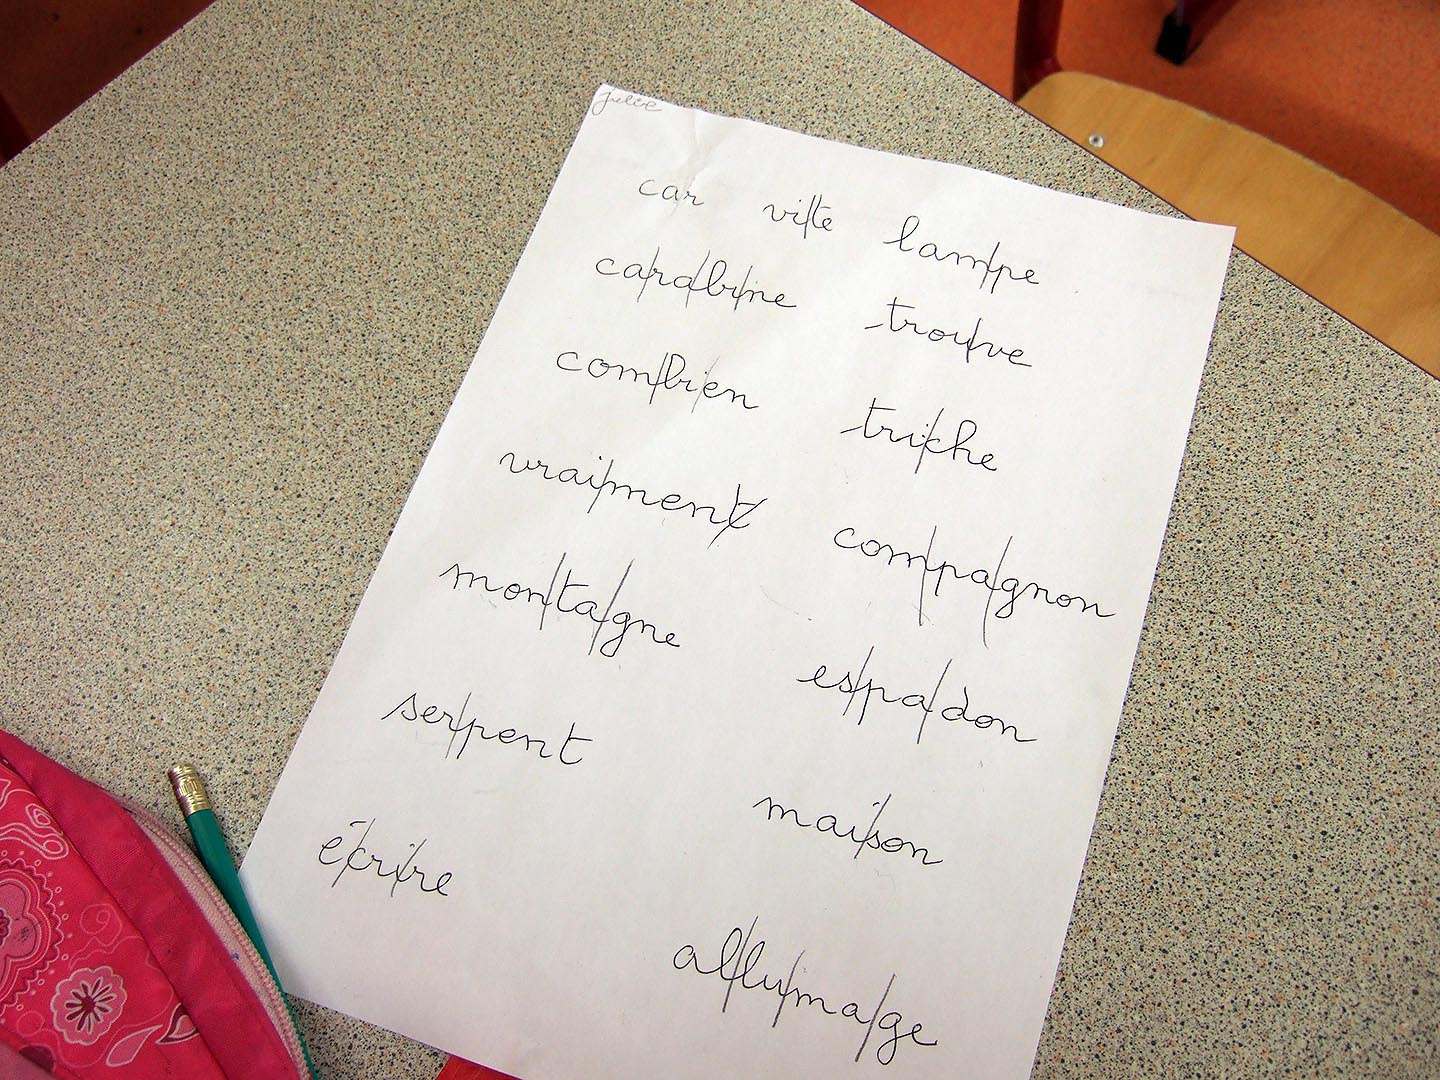 julie
car vi/te lam/pe
ca/ra/bi/ne trou/ve
com/bi/en tri/che
vrai/ment com/pa/gnon
mon/ta/gne es/pa/don
ser/pent mai/son
é/cri/re al/lu/ma/ge